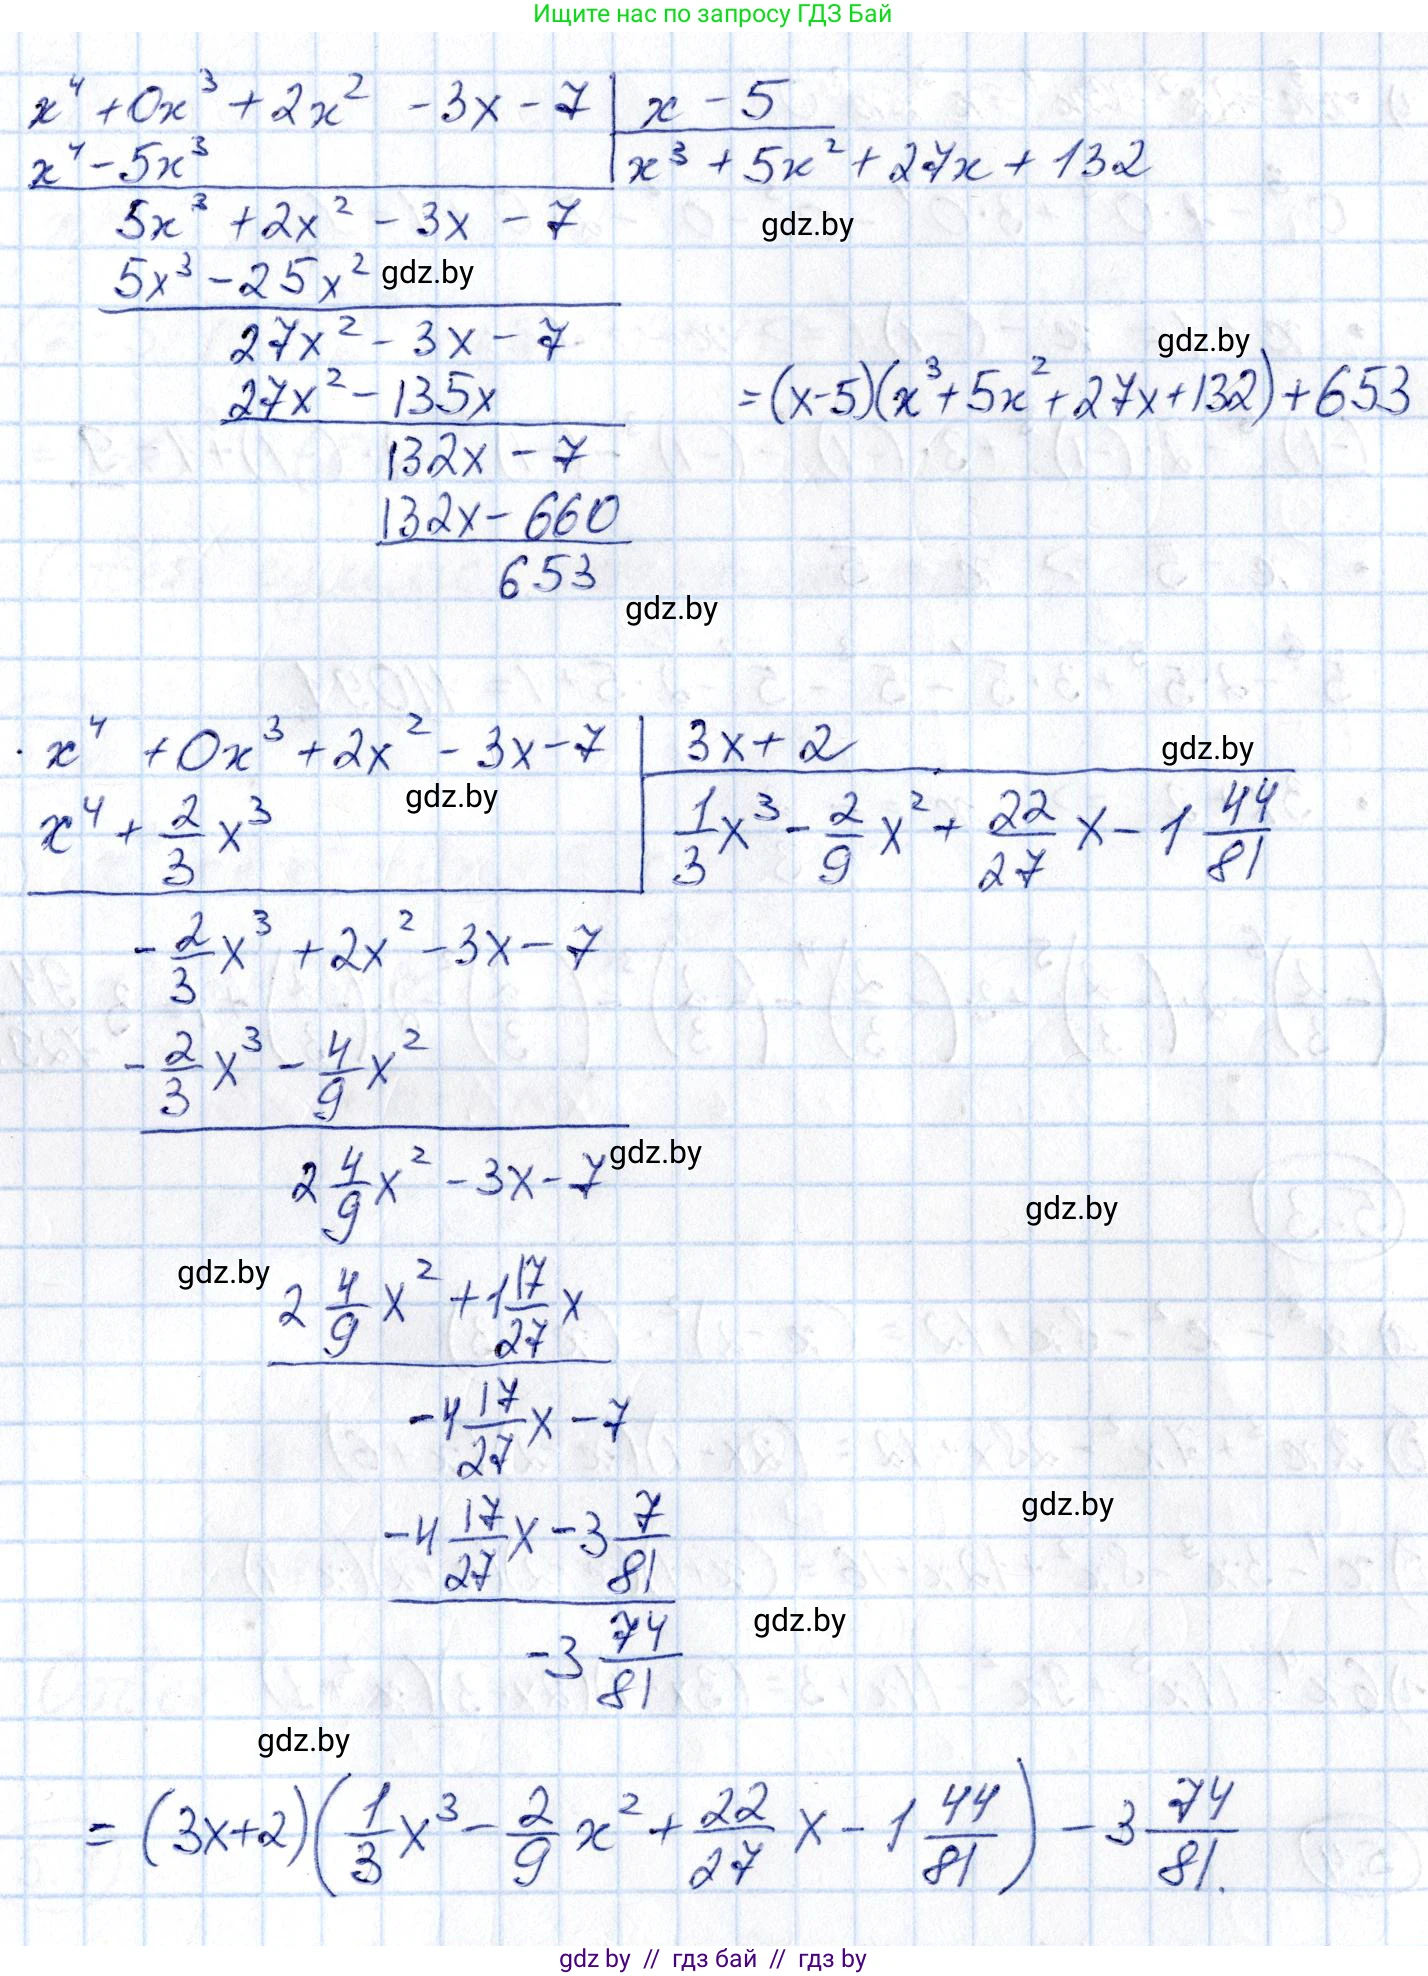 Ищите нас по запросу ГДЗ Бай
x⁴ + 0x³ + 2x² - 3x - 7 | x - 5
x⁴ - 5x³ | x³ + 5x² + 27x + 132
5x³ + 2x² - 3x - 7 gdz.by
5x³ - 25x² gdz.by
27x² - 3x - 7 gdz.by
27x² - 135x = (x-5)(x³+5x²+27x+132)+653
132x - 7
132x - 660
653
gdz.by
· x⁴ + 0x³ + 2x² - 3x - 7 | 3x + 2 gdz.by
gdz.by
x⁴ + 2/3 x³ | 1/3 x³ - 2/9 x² + 22/27 x - 1 44/81
- 2/3 x³ + 2x² - 3x - 7
- 2/3 x³ - 4/9 x²
2 4/9 x² - 3x - 7 gdz.by
gdz.by
gdz.by
2 4/9 x² + 1 17/27 x
-4 17/27 x - 7
gdz.by
-4 17/27 x - 3 7/81
gdz.by
-3 74/81
gdz.by
= (3x+2)(1/3 x³ - 2/9 x² + 22/27 x - 1 44/81) - 3 74/81.
gdz.by // гдз бай // гдз by